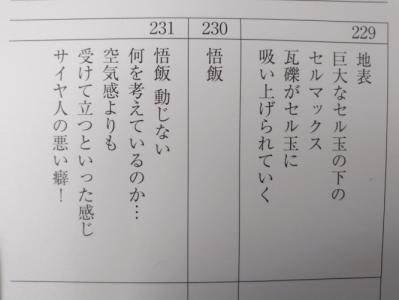 229
地表
巨大なセル玉の下の
セルマックス
瓦礫がセル玉に
吸い上げられていく
230
悟飯
231
悟飯 動じない
何を考えているのか…
空気感よりも
受けて立つといった感じ
サイヤ人の悪い癖！